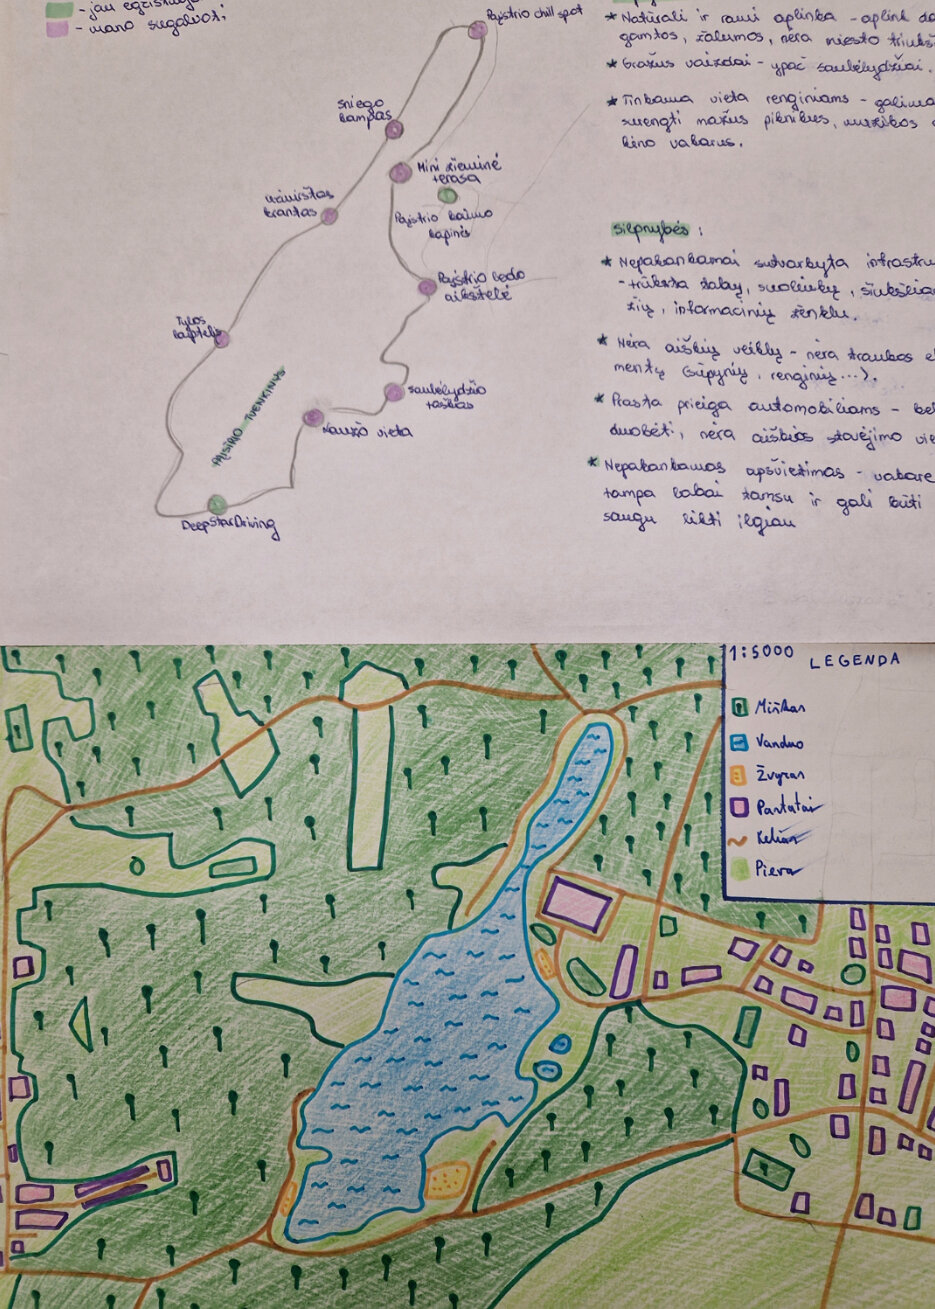 - jau egzistuoja
- mano sugalvoti;
Pajstrio chill spot
sniego
kampas
Mini žieminė
terasa
užmirštas
krantas
Pajstrio kaimo
kapinės
Pajstrio ledo
aikštelė
Tylos
laiptelis
saulėlydžio
taškas
Laužo vieta
TVENKINYS
DeepStarDriving
* Natūrali ir rami aplinka - aplink
gamtos, žalumos, nėra miesto
* Gražus vaizdai - ypač saulėlydžiai.
* Tinkama vieta renginiams -
surengti mažus piknikus, muzikos
kino vakarus.
silpnybės:
* Nepakankamai sutvarkyta
- trūksta suoliukų,
informacinių ženklų.
* Nėra aiškių veiklų - nėra traukos
mentų (sūpynių, renginių...).
* Prasta prieiga automobiliams -
duobėti, nėra aiškios stovėjimo
* Nepakankamas apšvietimas -
tampa labai tamsu ir gali būti
saugu likti ilgiau
1:5000 LEGENDA
Miškas
Vanduo
Žvyras
Pastatai
Kelias
Pieva